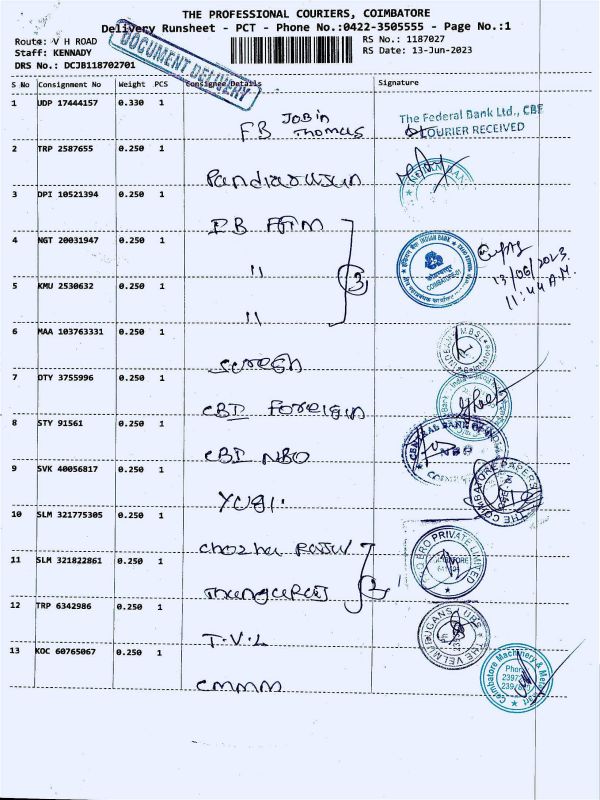 THE PROFESSIONAL COURIERS, COIMBATORE
Delivery Runsheet - PCT - Phone No.:0422-3505555 - Page No.:1
Route: V H ROAD
RS No.: 1187027
Staff: KENNADY
RS Date: 13-Jun-2023
DRS No.: DCJB118702701
DOCUMENT DELIVERY
S No Consignment No Weight PCS Consignee Details Signature
1 UDP 17444157 0.330 1
FB JOBIN Thomas
The Federal Bank Ltd., CBE
COURIER RECEIVED
2 TRP 2587655 0.250 1
3 DPI 10521394 0.250 1
4 NGT 20031947 0.250 1
"
INDIAN BANK
13/06/2023
11:44 A.M.
5 KMU 2530632 0.250 1
"
3
6 MAA 103763331 0.250 1
Suresh
7 DTY 3755996 0.250 1
CBI Foreign
8 STY 91561 0.250 1
CBI NBO
CENTRAL BANK OF
NBO
9 SVK 40056817 0.250 1
YUGI.
THE COIMBATORE PAPERS
10 SLM 321775305 0.250 1
BRO PRIVATE LIMITED
11 SLM 321822861 0.250 1
2
12 TRP 6342986 0.250 1
T.V.L
13 KOC 60765067 0.250 1
CMMM
Coimbatore Machinery &